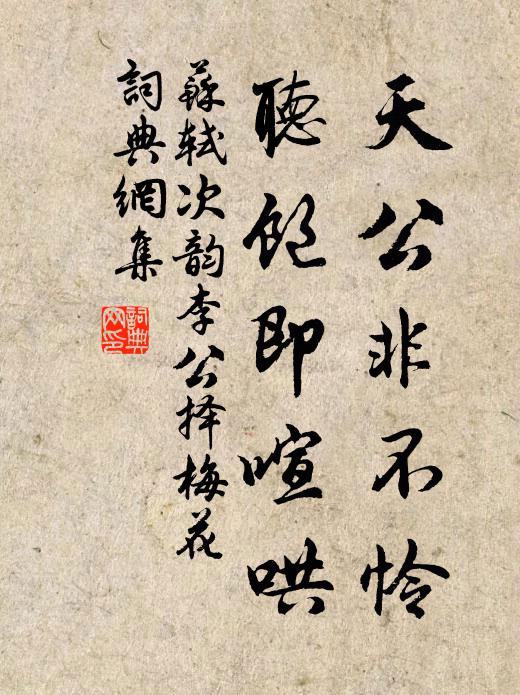 天公非不怜
聽飽即喧哄
蘇軾次韵李公择梅花
詞典網集
詞典网印